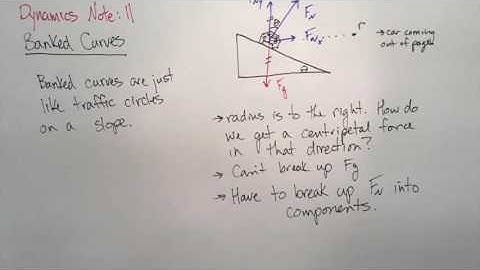 Dynamics Note: 11
Banked Curves
Banked curves are just
like traffic circles
on a slope.
FN
FNx
r
→ car coming
out of page
θ
Fg
→ radius is to the right. How do
we get a centripetal force
in that direction?
→ Can't break up Fg
→ Have to break up FN into
components.